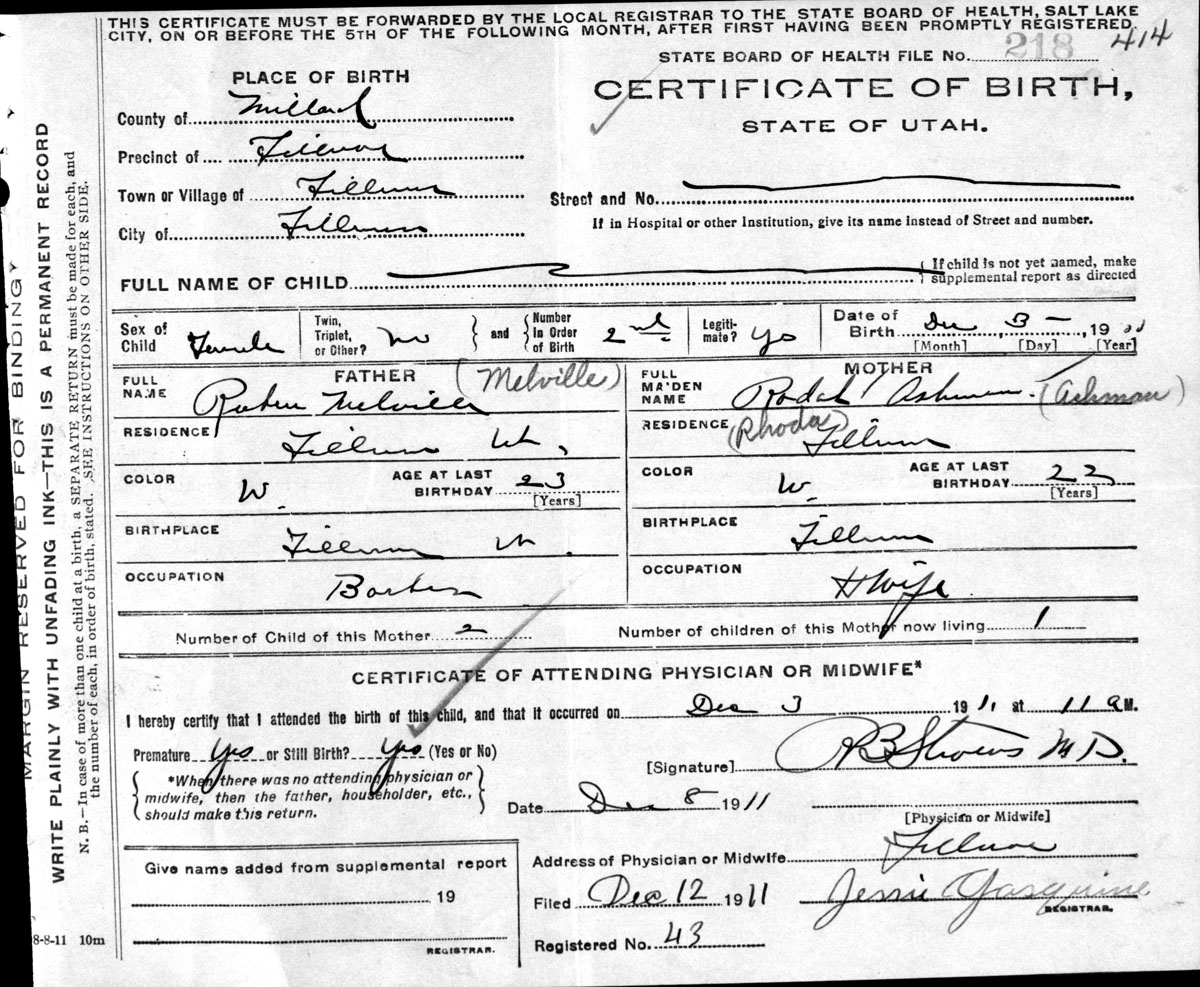 THIS CERTIFICATE MUST BE FORWARDED BY THE LOCAL REGISTRAR TO THE STATE BOARD OF HEALTH, SALT LAKE
CITY, ON OR BEFORE THE 5TH OF THE FOLLOWING MONTH, AFTER FIRST HAVING BEEN PROMPTLY REGISTERED.
STATE BOARD OF HEALTH FILE No. 218 414
PLACE OF BIRTH
CERTIFICATE OF BIRTH,
STATE OF UTAH.
County of Millard
Precinct of Fillmore
Town or Village of Fillmore
Street and No.
City of Fillmore
If in Hospital or other Institution, give its name instead of Street and number.
FULL NAME OF CHILD
If child is not yet named, make
supplemental report as directed
Sex of Child Female
Twin, Triplet, or Other? No
and Number In Order of Birth 2nd
Legiti-mate? Yes
Date of Birth Dec 3 1911
[Month] [Day] [Year]
FATHER (Melville)
FULL NAME Melville
RESIDENCE Fillmore Ut,
COLOR W. AGE AT LAST BIRTHDAY 23
[Years]
BIRTHPLACE Fillmore Ut.
OCCUPATION Barber
MOTHER
FULL MAIDEN NAME Rodah Ashman (Ashman)
RESIDENCE (Rhoda) Fillmore
COLOR W. AGE AT LAST BIRTHDAY 22
[Years]
BIRTHPLACE Fillmore
OCCUPATION H Wife
Number of Child of this Mother 2 Number of children of this Mother now living 1
CERTIFICATE OF ATTENDING PHYSICIAN OR MIDWIFE*
I hereby certify that I attended the birth of this child, and that it occurred on Dec 3 1911, at 11 a M.
Premature yes or Still Birth? yes (Yes or No)
[Signature] Stevens M D.
*When there was no attending physician or
midwife, then the father, householder, etc.,
should make this return.
Date Dec 8 1911
[Physician or Midwife]
Give name added from supplemental report
19
REGISTRAR.
Address of Physician or Midwife Fillmore
Filed Dec 12 1911 Jessie
REGISTRAR.
Registered No. 43
8-8-11 10m
MARGIN RESERVED FOR BINDING
WRITE PLAINLY WITH UNFADING INK—THIS IS A PERMANENT RECORD
N. B.—In case of more than one child at a birth, a SEPARATE RETURN must be made for each, and
the number of each, in order of birth, stated. SEE INSTRUCTIONS ON OTHER SIDE.